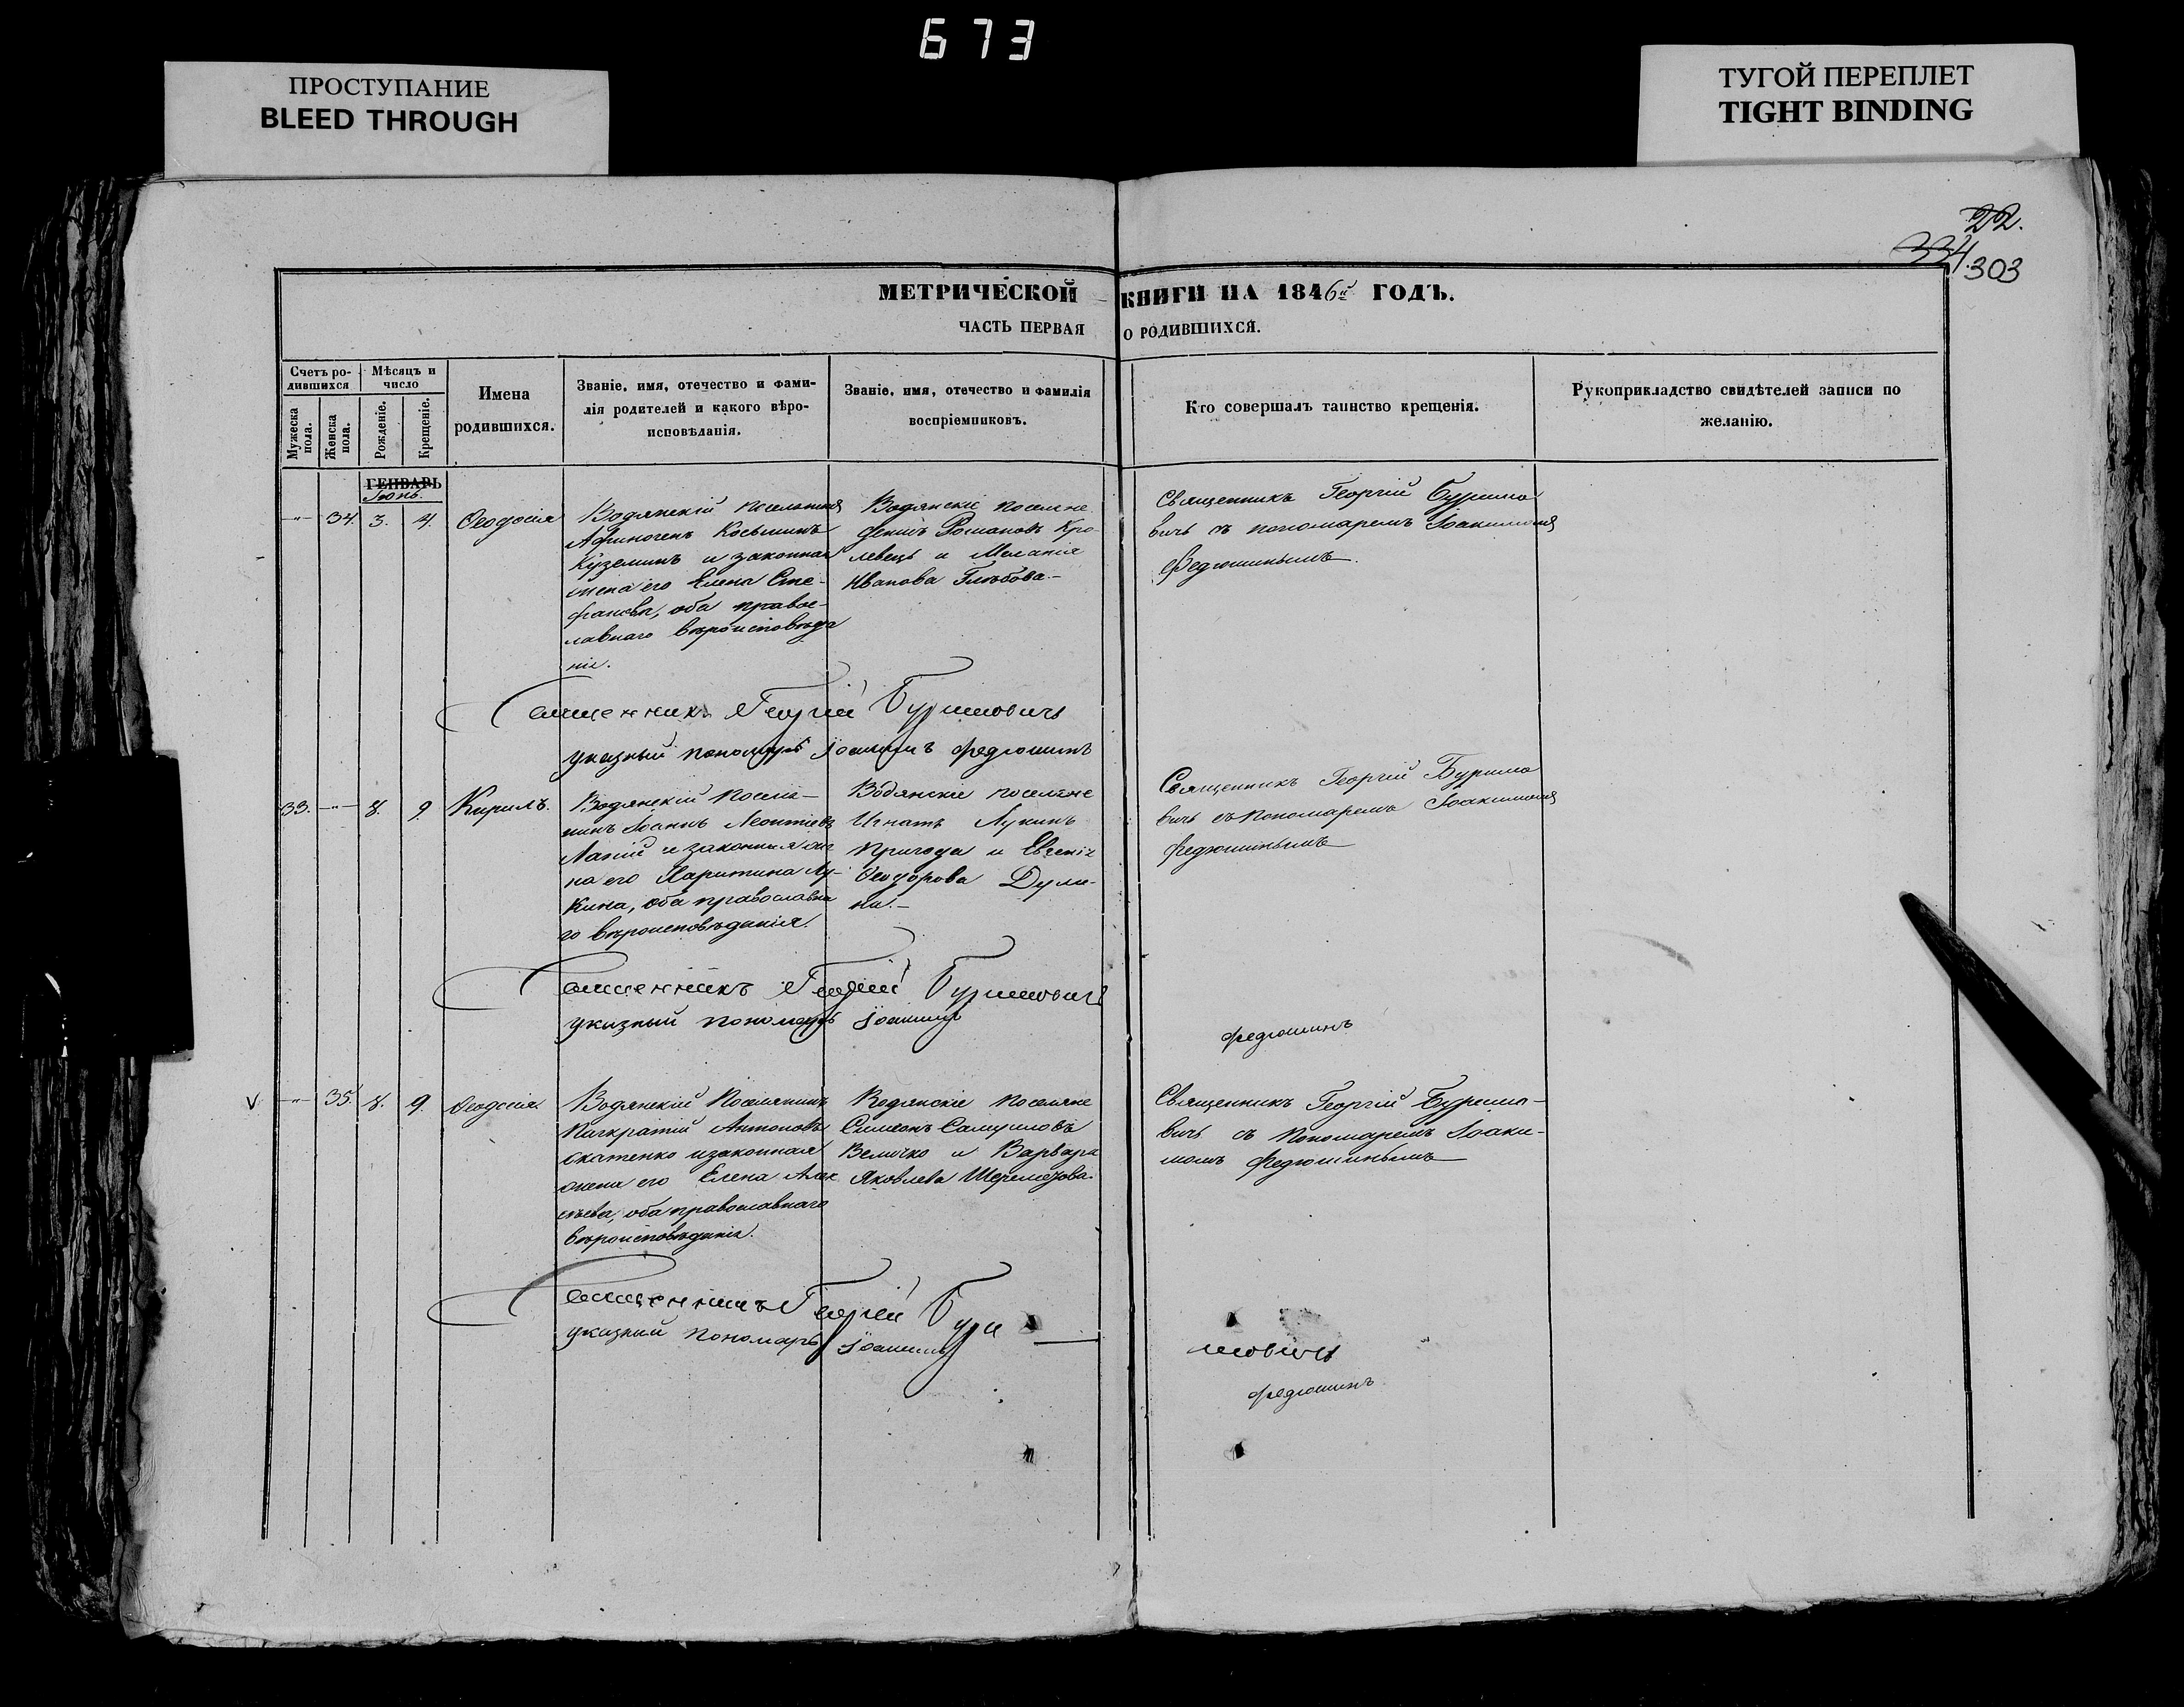 673
ПРОСТУПАНИЕ
BLEED THROUGH
ТУГОЙ ПЕРЕПЛЕТ
TIGHT BINDING
22.
334.
303
МЕТРИЧЕСКОЙ КНИГИ НА 1846й ГОДЪ.
ЧАСТЬ ПЕРВАЯ О РОДИВШИХСЯ.
Счетъ ро-
дившихся
Мѣсяцъ и
число
Мужеска
пола.
Женска
пола.
Рожденіе.
Крещеніе.
Имена
родившихся.
Званіе, имя, отечество и фами-
лія родителей и какого вѣро-
исповѣданія.
Званіе, имя, отечество и фамилія
воспріемниковъ.
Кто совершалъ таинство крещенія.
Рукоприкладство свидѣтелей записи по
желанію.
ГЕНВАРЬ
Іюнь.
-"- 34. 3. 4. Ѳеодосія
Водянскій поселянинъ
Афиногенъ Косьминъ
Куземинъ и законная
жена его Елена Сте-
фанова, оба правос-
лавнаго вѣроисповѣда
нія.
Водянскіе поселяне
Романовъ Кро-
левецъ и Меланія
Иванова Глѣбова.-
Священникъ Георгій Буримо
вичь съ пономаремъ Іоакимомъ
Федюшинымъ.
Священникъ Георгій Буримовичь
указный пономарь Іоакимъ Федюшинъ
33. -"- 8. 9. Кирилъ.
Водянскій поселя-
нинъ Іоаннъ Леонтіевъ
и законная же
на его Харитина Лу-
кина, оба православна
го вѣроисповѣданія.
Водянскіе поселяне
Игнатъ Лукинъ
Пригода и Евгенія
Ѳеодорова Дули-
на.-
Священникъ Георгій Буримо
вичь съ пономаремъ Іоакимомъ
Федюшинымъ
Священникъ Георгій Буримовичь
указный пономарь Іоакимъ Федюшинъ
V -"- 35. 8. 9. Ѳеодосія
Водянскій поселянинъ
Панкратій Антоновъ
и законная
жена его Елена Алек
сѣева, оба православнаго
вѣроисповѣданія.
Водянскіе поселяне
Симеонъ Самуиловъ
Величко и Варвара
Яковлева Шереметова.
Священникъ Георгій Буримо-
вичь съ пономаремъ Іоаки-
момъ Федюшинымъ
Священникъ Георгій Бури мовичь
указный пономарь Іоакимъ Федюшинъ